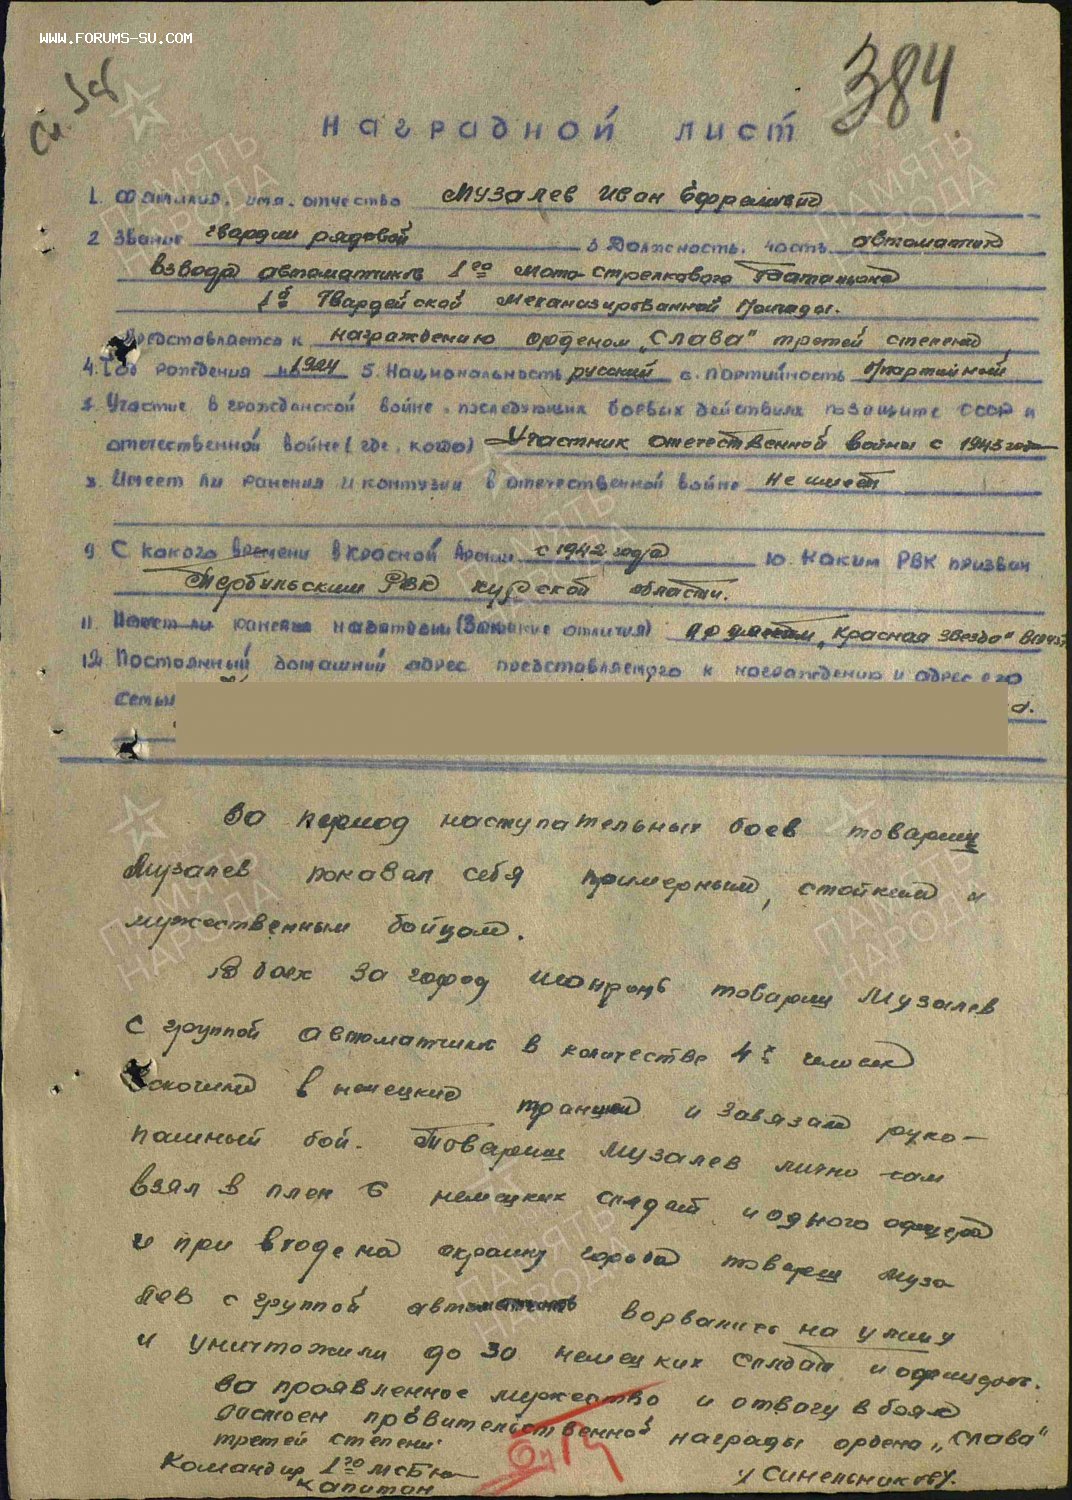 WWW.FORUMS-SU.COM
384
наградной лист
1. Фамилия, имя, отчество Музалев Иван Ефремович
2 Звание гвардии рядовой 3 Должность, часть автоматчик
взвода автоматчиков 1го Мото-стрелкового Батальона
1й Гвардейской Механизированной бригады.
Представляется к награждению орденом „Слава" третей степени
4. Год рождения 1924 5. Национальность русский 6. партийность
7 Участие в гражданской войне, последующих боевых действиях по защите СССР и
отечественной войне (где, когда) Участник отечественной войны с 1943
8 Имеет ли ранения и контузии в отечественной войне не имеет
9 С какого времени в Красной Армии с 1942 года 10 Каким РВК призван
РВК Курской области.
11 ли ранее награжден (За отличия) „Красная Звезда"
12 Постоянный домашний адрес представляемого к награждению и адрес его
семьи
За период наступательных боев товарищ
Музалев показал себя примерным, стойким и
мужественным бойцом.
В боях за город товарищ Музалев
с группой автоматчиков в количестве 4х человек
вскочили в немецкие траншеи и завязали руко-
пашный бой. Товарищ Музалев лично сам
взял в плен 6 немецких солдат и одного офицера
и при входе на окраину города товарищ Муза
лев с группой автоматчиков ворвались на улицу
и уничтожили до 30 немецких солдат и офицеров.
за проявленное мужество и отвагу в боях
достоен правительственной награды ордена „Слава"
третей степени
Командир 1го мсб
капитан /Синельников/.
ПАМЯТЬ
НАРОДА
ПАМЯТЬ
НАРОДА
ПАМЯТЬ
НАРОДА
ПАМЯТЬ
НАРОДА
ПАМЯТЬ
НАРОДА
ПАМЯТЬ
НАРОДА